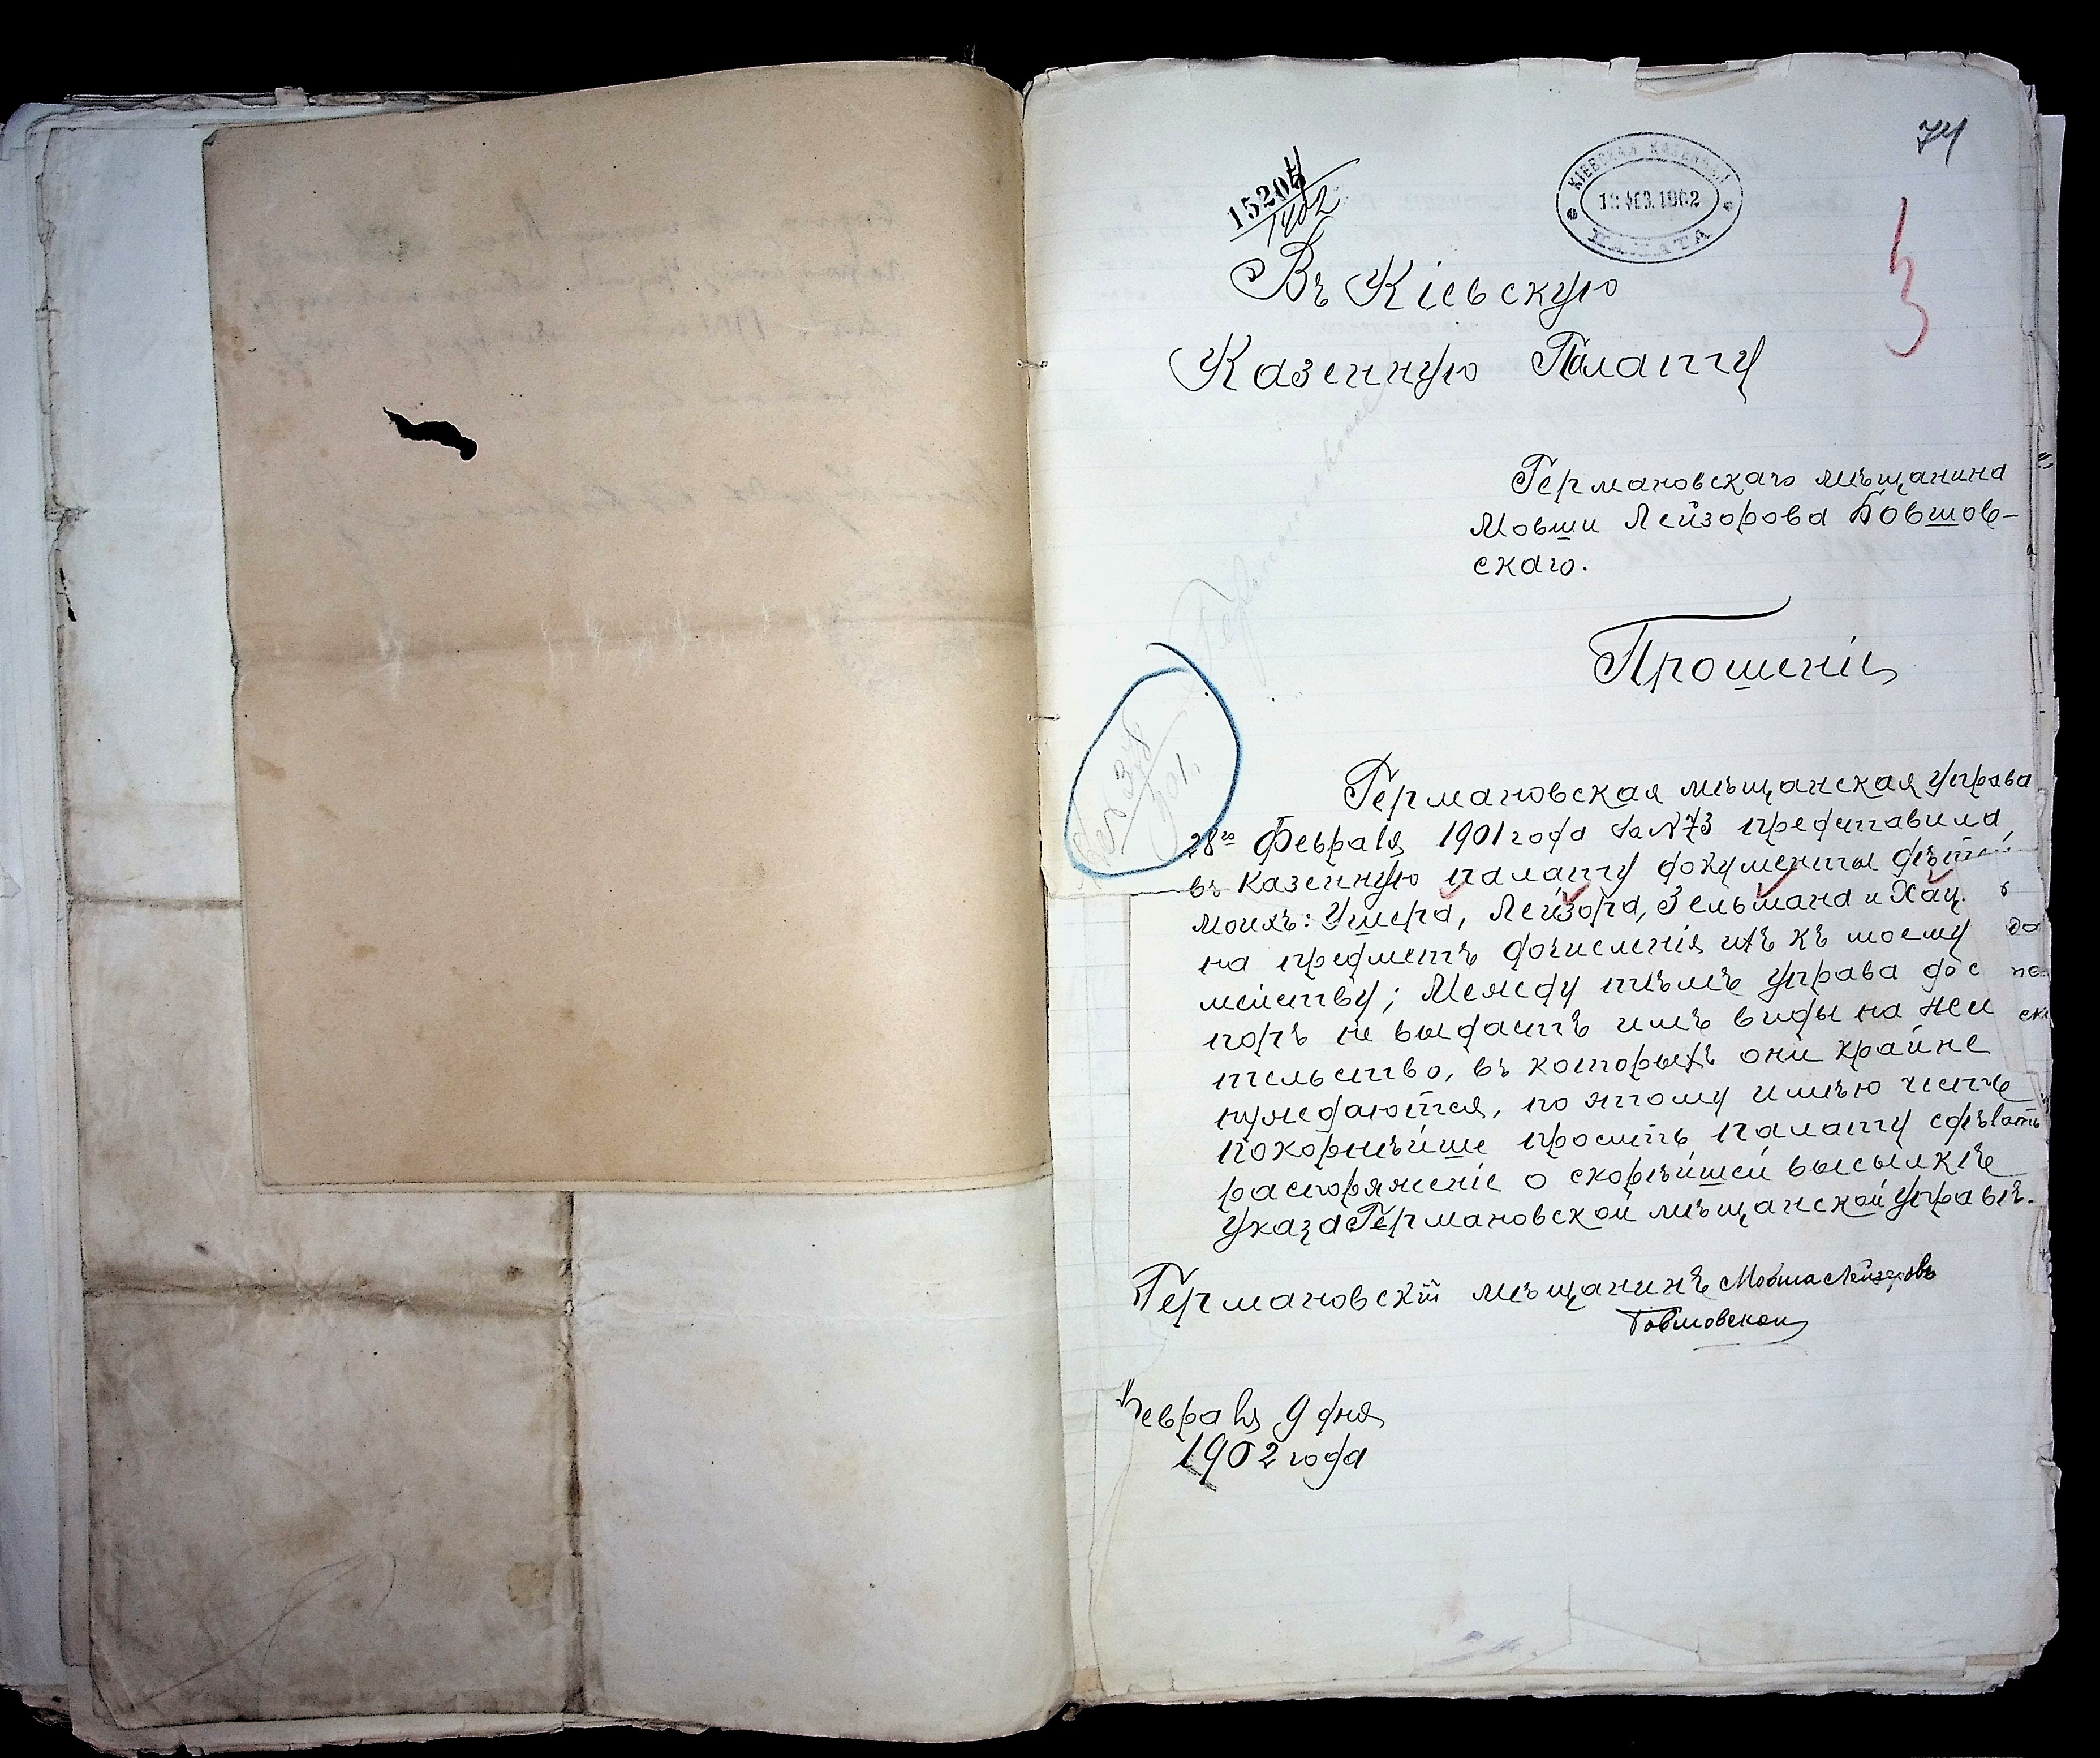 74
15204
1902
КІЕВСКАЯ КАЗЕННАЯ
12 ФЕВ. 1902
ПАЛАТА
Въ Кіевскую
Казенную Палату
Германовскаго мѣщанина
Мовши Лейзорова Бовшов-
скаго.
Прошеніе
378
901.
Германовская мѣщанская управа
28го Февраля 1901 года за № 73 представила
въ Казенную палату документы дѣтей
моихъ: Ушера, Лейзора, Зельмана и Хац.
на предметъ дочисленія ихъ къ моему
мейству; Между тѣмъ управа до с
поръ не выдаетъ имъ виды на жи
тельство, въ которыхъ они крайне
нуждаются, по этому имѣю честь
покорнѣйше просить палату сдѣлать
распоряженіе о скорѣйшей высылкѣ
указа Германовской мѣщанской управѣ.
Германовскій мѣщанинъ Мовша Лейзоровъ
Бовшовской
Февраля 9 дня
1902 года